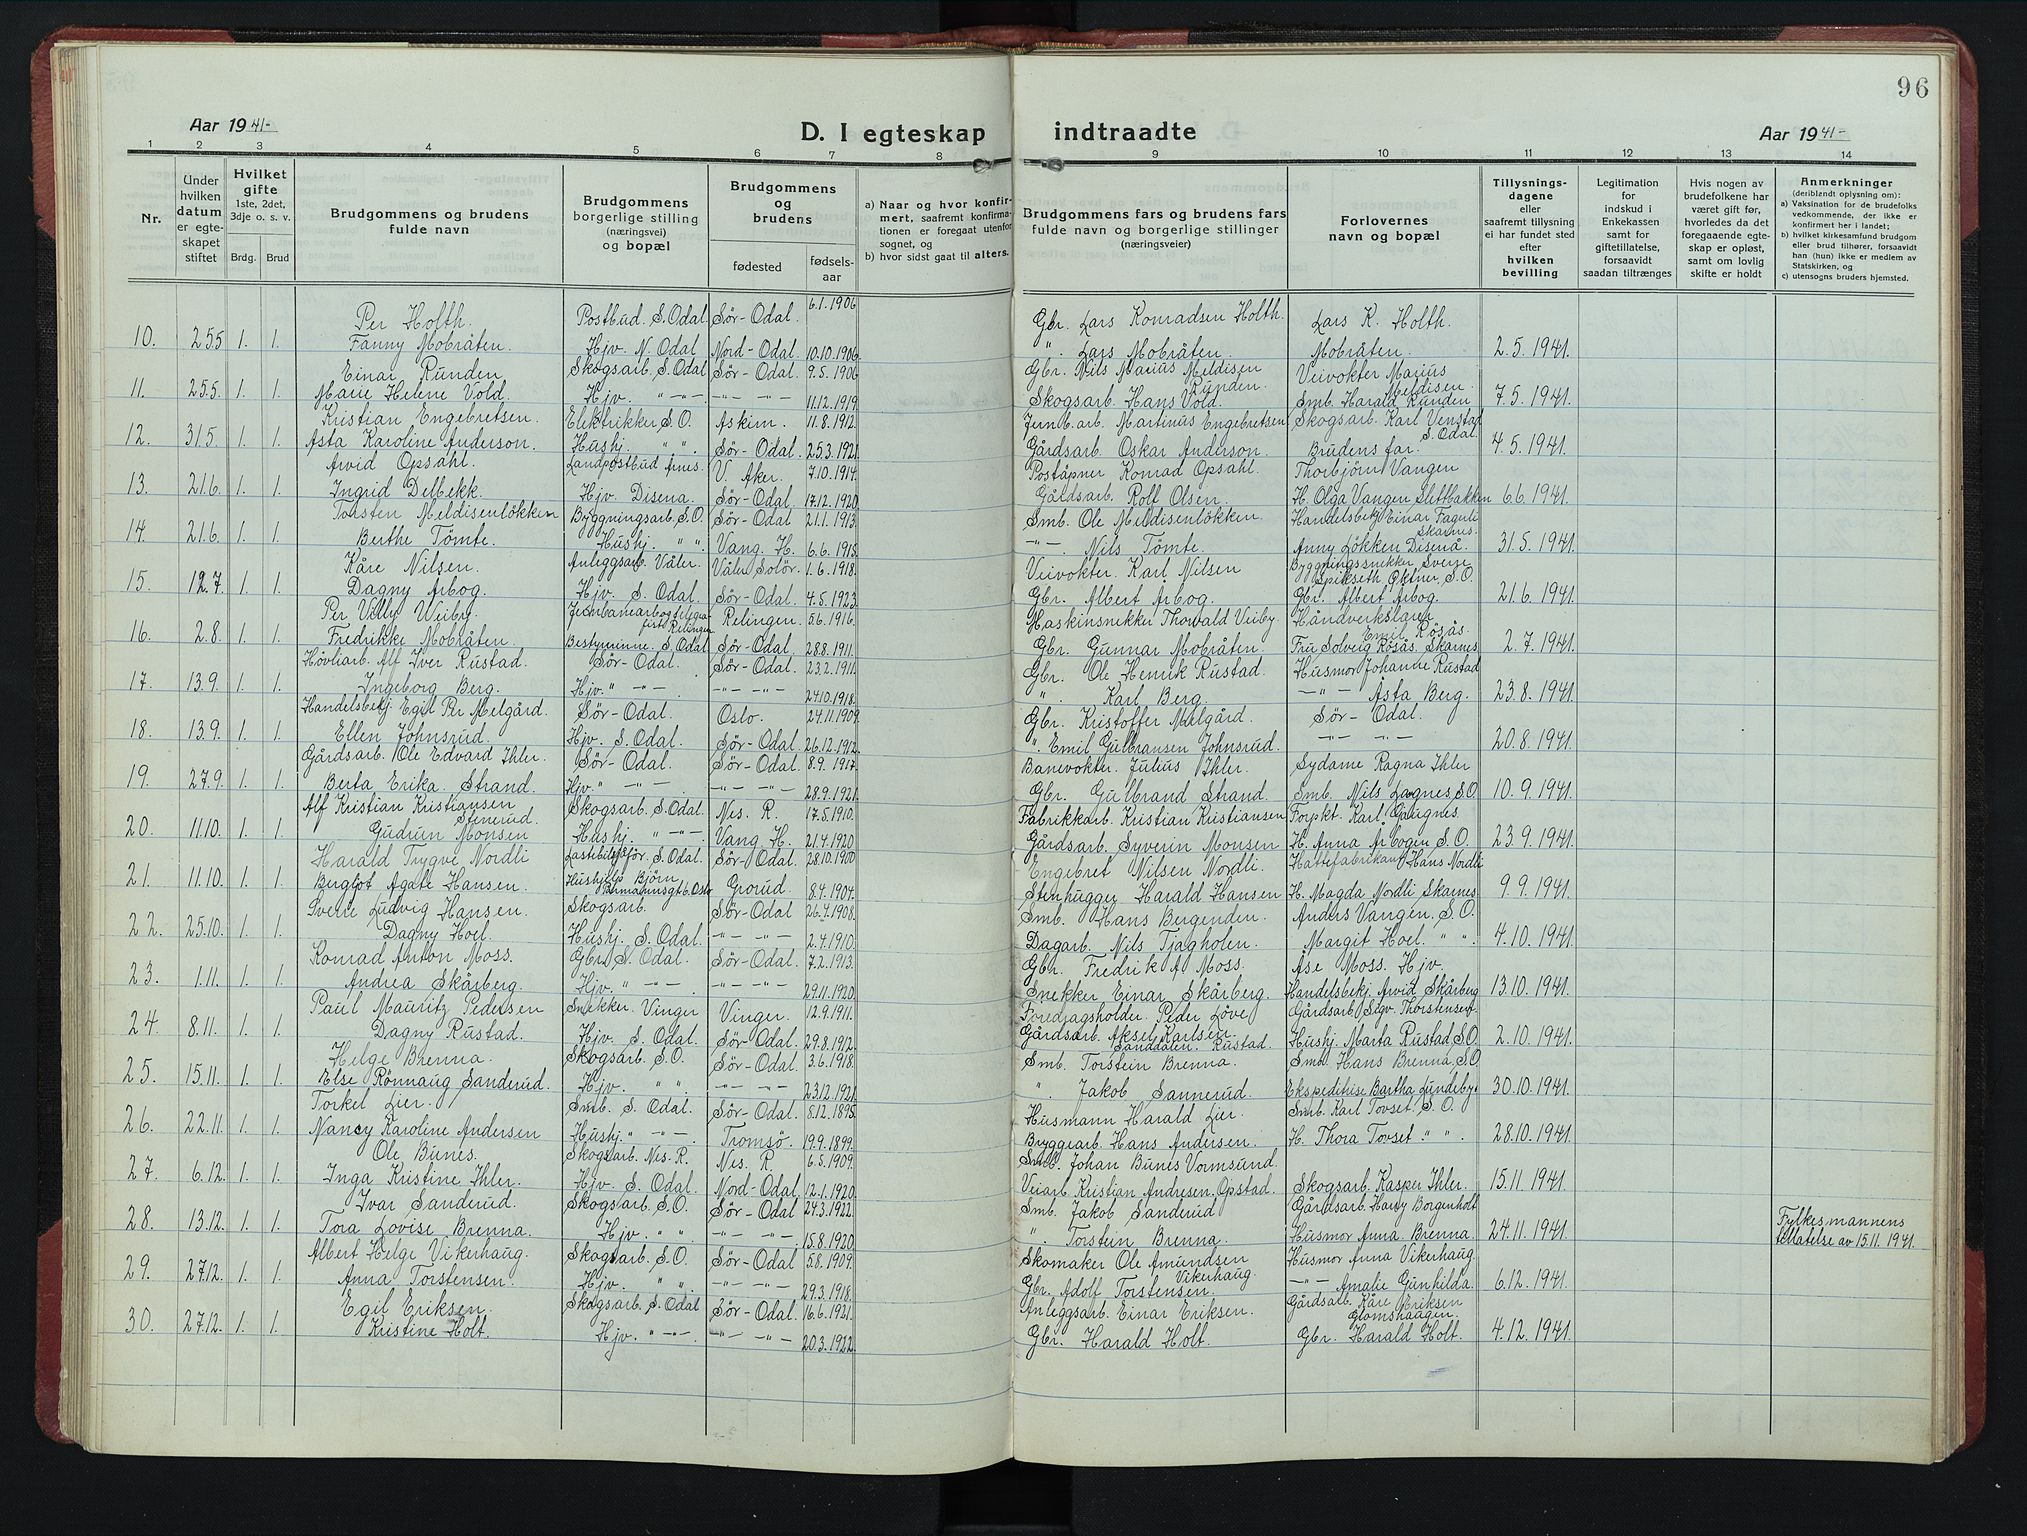 96
Aar 1941-
D. I egteskap indtraadte
Aar 1941-
1 2 3 4 5 6 7 8 9 10 11 12 13 14
Nr.
Under hvilken datum er egteskapet stiftet
Hvilket gifte 1ste, 2det, 3dje o. s. v.
Brdg. Brud
Brudgommens og brudens fulde navn
Brudgommens borgerlige stilling (næringsvei) og bopæl
Brudgommens og brudens
fødested
fødselsaar
a) Naar og hvor konfirmert, saafremt konfirmationen er foregaat utenfor sognet, og
b) hvor sidst gaat til alters.
Brudgommens fars og brudens fars fulde navn og borgerlige stillinger (næringsveier)
Forlovernes navn og bopæl
Tillysningsdagene eller saafremt tillysning ei har fundet sted efter hvilken bevilling
Legitimation for indskud i Enkekassen samt for giftetillatelse, forsaavidt saadan tiltrænges
Hvis nogen av brudefolkene har været gift før, hvorledes da det foregaaende egteskap er opløst, samt om lovlig skifte er holdt
Anmerkninger (deriblandt oplysning om):
a) Vaksination for de brudefolks vedkommende, der ikke er konfirmert her i landet;
b) hvilket kirkesamfund brudgom eller brud tilhører, forsaavidt han (hun) ikke er medlem av Statskirken, og
c) utensogns bruders hjemsted.
Per Holth. Postbud. S. Odal. Sör-Odal. 6.1.1906 Gbr. Lars Konradsen Holth. Lars K. Holth.
10. 25.5 1. 1. Fanny Mobråten. Hjv. N. Odal Nord-Odal. 10.10.1906 ". Lars Mobråten. Mobråten. 2.5.1941.
Einar Runden Skogsarb. S. Odal Sör-Odal. 9.5.1906 Gbr. Nils Marius Meldisen Runden. Veivokter Marius Meldisen.
11. 25.5 1. 1. Marie Helene Vold. Hjv. "-"- -"- -"- 11.12.1919 Skogsarb. Hans Vold. Smb. Harald Runden 7.5.1941.
Kristian Engebretsen. Elektrikker S.O. Askim. 11.8.1912. Jernb.arb. Martinus Engebretsen Skogsarb. Karl Venstad S. Odal.
12. 31.5. 1. 1. Asta Karoline Anderson. Hushj. " ". Sör-Odal. 25.3.1921. Gårdsarb. Oskar Anderson. Brudens far. 4.5.1941.
Arvid Opsahl. Landpostbud Årnes. V. Aker. 7.10.1914. Poståpner Konrad Opsahl. Thorbjörn Vangen
13. 21.6. 1. 1. Ingrid Delbekk. Hjv. Disena. Sör-Odal. 17.12.1920. Gårdsarb. Rolf Olsen. H. Olga Vangen Slettbakken 6.6.1941.
Torsten Meldisenlökken Byggningsarb. S.O. Sör-Odal 21.1.1913. Smb. Ole Meldisenlökken. Handelsbetj. Einar Fagerli Skarnes.
14. 21.6. 1. 1. Berthe Tömte. Hushj. " ". Vang. H. 6.6.1915. -"-. Nils Tömte. Anny Lökken Disenå. 31.5.1941.
Kåre Nilsen. Anleggsarb. Våler. Våler Solör. 1.6.1918. Veivokter. Karl Nilsen Byggningssnekker Sverre
15. 12.7 1. 1. Dagny Arbog. Hjv. S. Odal. Sör-Odal. 4.5.1923. Gbr. Albert Arbog. Gbr. Albert Arbog. 21.6.1941.
Per Villy Veiby. Relingen. 5.6.1916. Maskinsnekker Thorvald Veiby. Håndverkslærer Emil Rösås.
16. 2.8. 1. 1. Fredrikke Mobråten. Bestyrerinne. S. Odal. Sör-Odal. 28.8.1911. Gbr. Gunnar Mobråten. Fru Solveig Rösås. Skarnes. 2.7.1941.
Høvliarb. Alf Iver Rustad. Sör-Odal. Sör-Odal. 23.2.1911. Gbr. Ole Henrik Rustad. Husmor Johanne Rustad
17. 13.9. 1. 1. Ingeborg Berg. Hjv. " -"- -"- -"- 24.10.1918. ". Karl Berg. -"- Åsta Berg. 23.8.1941.
Handelsbetj. Egil Per Melgård. Sör-Odal. Oslo. 24.11.1909. Gbr. Kristoffer Melgård. Sör-Odal.
18. 13.9. 1. 1. Ellen Johnsrud. Hjv. S. Odal. Sör-Odal. 26.12.1912. ". Emil Gulbransen Johnsrud. -"- -"- 20.8.1941.
Gårdsarb. Ole Edvard Ihler. Sör-Odal. Sör-Odal. 8.9.1917. Banevokter. Julius Ihler. Sydame Ragna Ihler
19. 27.9. 1. 1. Berta Erika Strand. Hjv. " -"- -"- -"- 28.9.1921. Gbr. Gulbrand Strand. Smb. Nils Lognes S.O 10.9.1941.
Alf Kristian Kristiansen Stenerud. Skogsarb. S. Odal. Nes. R. 17.5.1910. Fabrikkarb. Kristian Kristiansen Forpkt. Karl Gaugnes.
20. 11.10. 1. 1. Gudrun Monsen Hushj. " -"- Vang H. 21.4.1920 Gårdsarb. Syverin Monsen H. Anna Arbogen S.O. 23.9.1941.
Harald Trygve Nordli Lastebilsjåför. S. Odal. Sör-Odal. 28.10.1900 Engebret Nilsen Nordli. Hattefabrikant Hans Nordli
21. 11.10. 1. 1. Bergljot Agate Hansen. Grorud. 8.4.1904. Stenhugger Harald Hansen H. Magda Nordli Skarnes. 9.9.1941.
Sverre Ludvig Hansen. Skogsarb. Sör-Odal 26.4.1908. Smb. Hans Bergenden. Anders Vangen. S.O.
22. 25.10. 1. 1. Dagny Hoel. Hushj. S. Odal. -"- -"- 2.4.1910. Dagarb. Nils Tjagholen. Margit Hoel. " ". 4.10.1941.
Konrad Anton Moss. Gbr. S. Odal. Sör-Odal. 7.2.1913. Gbr. Fredrik A Moss. Åse Moss. Hjv.
23. 1.11. 1. 1. Andrea Skårberg. Hjv. " -"- -"- -"- 29.11.1920. Snekker Einar Skårberg. Handelsbetj. Arvid Skårberg 13.10.1941.
Paul Mauritz Pedersen Snekker. Vinger Vinger. 12.9.1911. Foredragsholder. Peder Löve Gårdsarb. Sigv. Thorstensen.
24. 8.11. 1. 1. Dagny Rustad. Hjv. S. Odal. Sör-Odal. 29.8.1912. Gårdsarb. Aksel Karlsen Sanddalen Rustad. Hushj. Marta Rustad S.O. 2.10.1941.
Helge Brenna. Skogsarb. S.O. Sör-Odal. 3.6.1918. Smb. Torstein Brenna. Smb. Hans Brenna. S.O
25. 15.11. 1. 1. Else Rönnaug Sanderud. Hjv. " " -"- -"- 23.12.1921. " Jakob Sannerud. Ekspeditrise Bartha Lundeby. 30.10.1941.
Torkel Lier. Smb. S. Odal. Sör-Odal. 8.12.1895. Husmann Harald Lier. Smb. Karl Tovset. S.O.
26. 22.11. 1. 1. Nancy Karoline Andersen Hushj. " -"- Tromsö. 19.9.1899. Byggearb. Hans Andersen. H. Thora Tovset. " ". 28.10.1941.
Ole Bunes. Skogsarb. Nes. R. Nes. R. 6.5.1909. Smb. Johan Bunes Vormsund.
27. 6.12. 1. 1. Inga Kristine Ihler. Hjv. S. Odal. Nord-Odal. 12.1.1920. Veiarb. Kristian Andresen, Opstad. Skogsarb. Kasper Ihler. 15.11.1941.
Ivar Sanderud. Skogsarb. S.O. Sör-Odal 24.3.1922. Smb. Jakob Sanderud Gårdsarb. Harry Borgenholt
28. 13.12. 1. 1. Tora Lovise Brenna. Hjv. " " -"- -"- 15.8.1920. ". Torstein Brenna. Husmor Anna Brenna. 24.11.1941. Fylkesmannens tillatelse av 15.11.1941.
Albert Helge Vikerhaug. Skogsarb. S.O. Sör-Odal 5.8.1909. Skomaker Ole Amundsen Vikerhaug. Husmor Anna Vikerhaug.
29. 27.12. 1. 1. Anna Torstensen. Hjv. " " -"- -"- 29.3.1918. Gbr. Adolf Torstensen. -"- Amalie Gunhilda. 6.12.1941.
Egil Eriksen. Skogsarb. S. Odal Sör-Odal. 16.6.1921. Anleggsarb. Einar Eriksen. Gårdsarb. Kåre Eriksen Glomshaagen.
30. 27.12. 1. 1. Kristine Holt. Hjv. " -"- -"- -"- 20.3.1922. Gbr. Harald Holt. Gbr. Harald Holt. 4.12.1941.